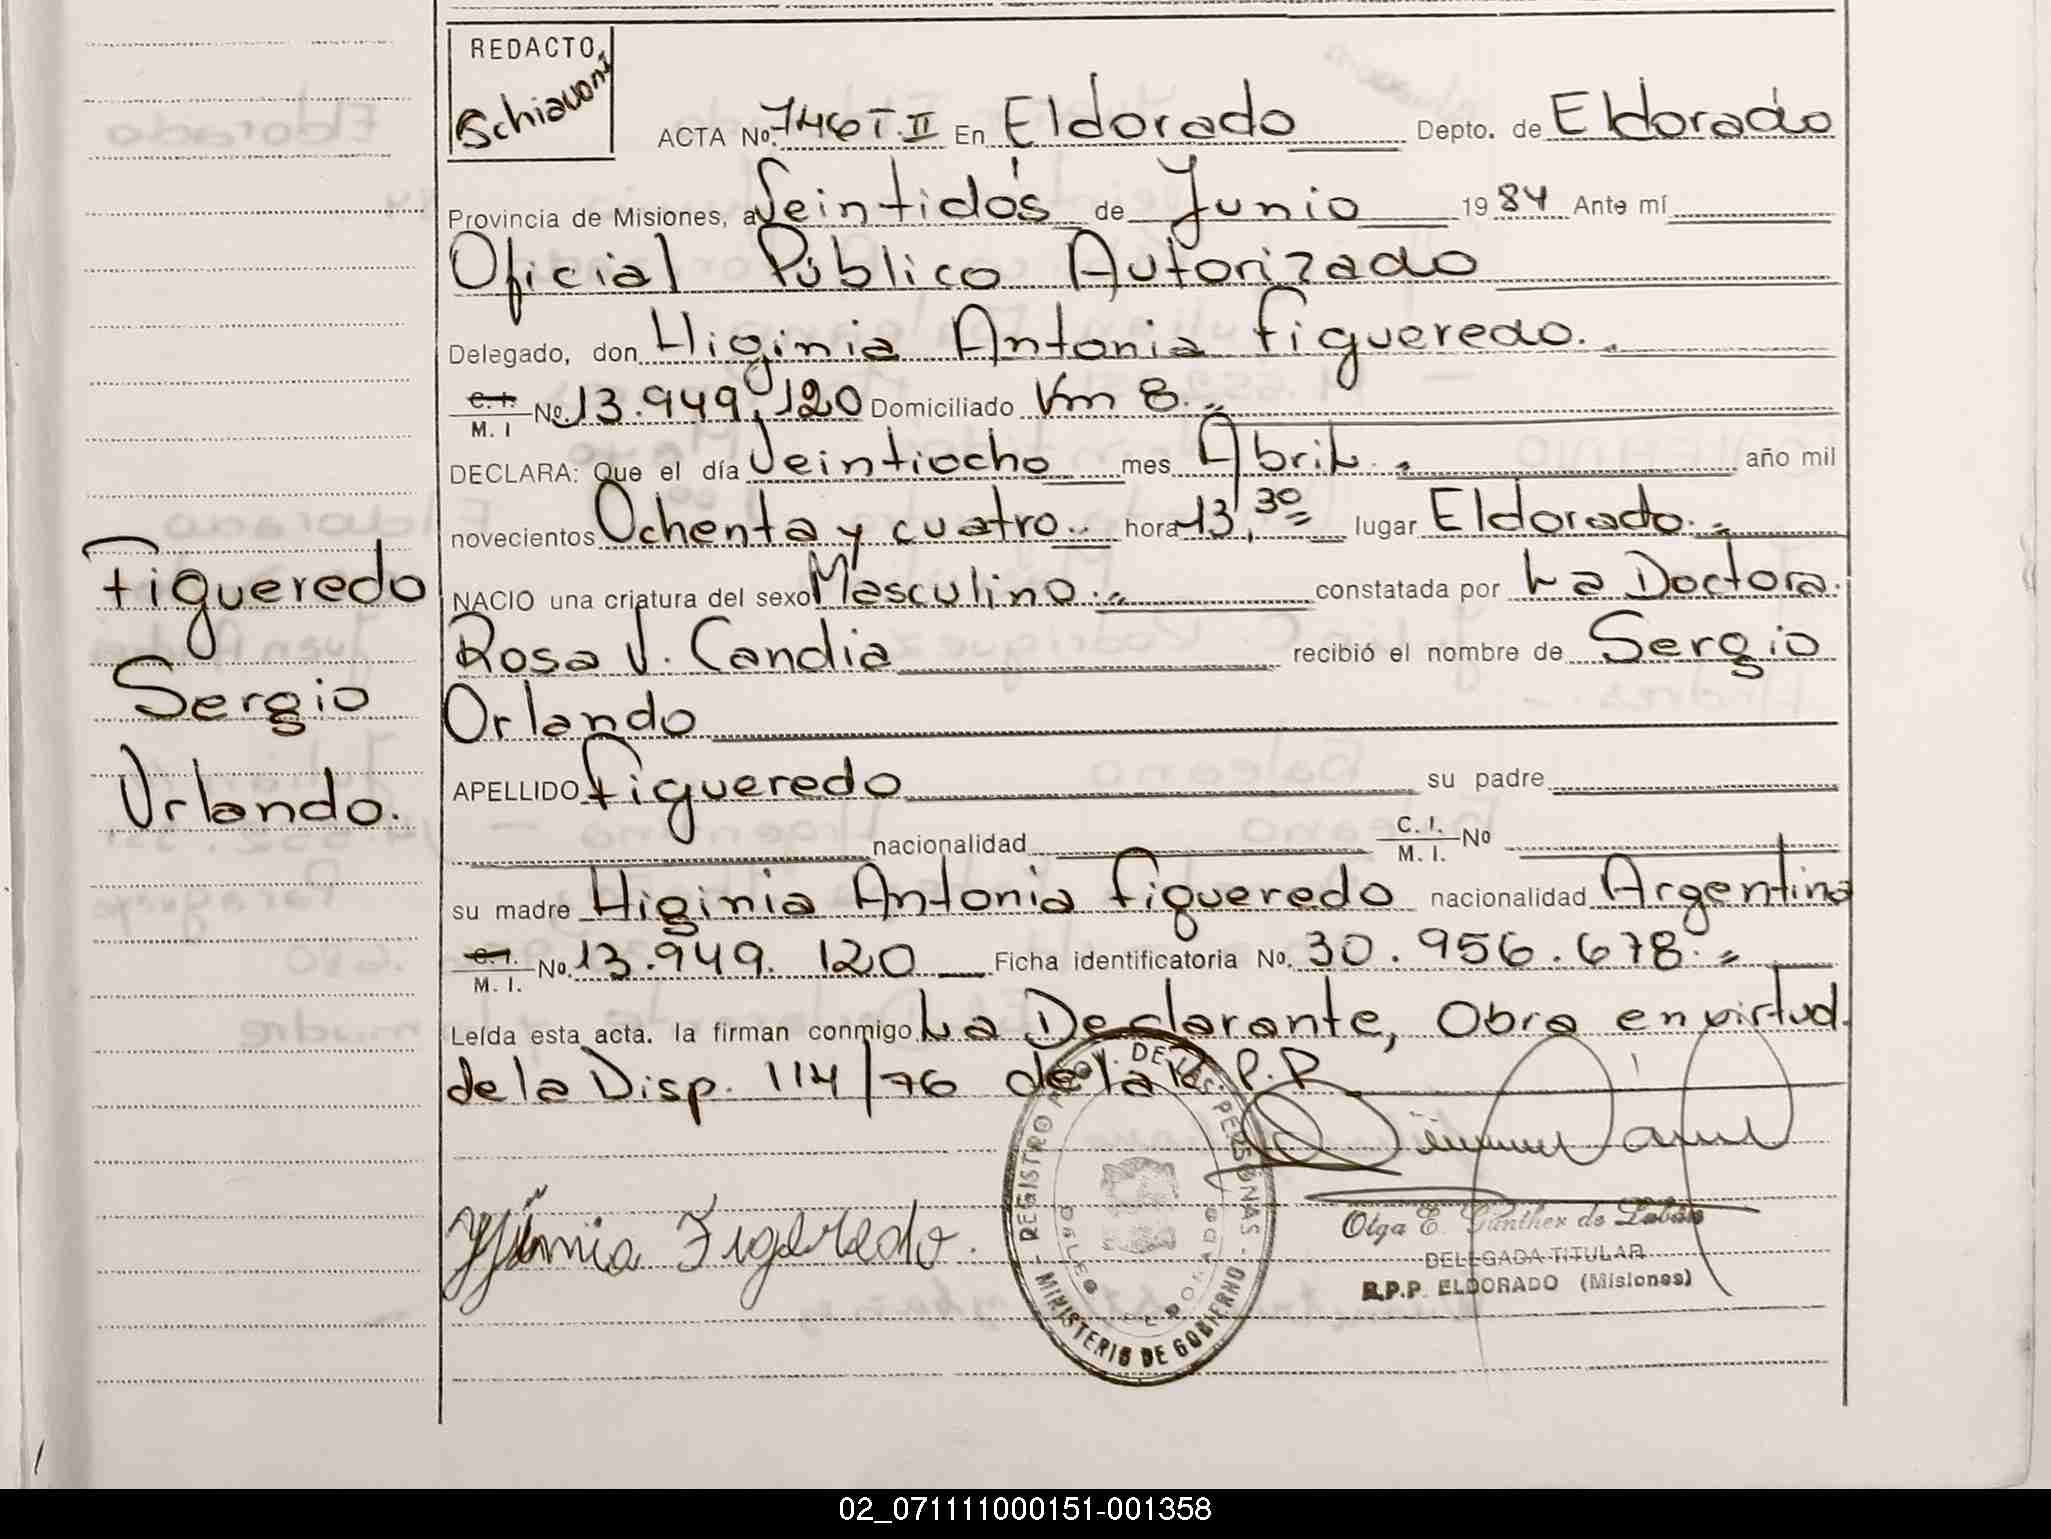 REDACTO
Schiavoni
ACTA No. 746 T. II En Eldorado Depto. de Eldorado
Provincia de Misiones, a Veintidós de Junio 1984 Ante mí
Oficial Público Autorizado
Delegado, don Higinia Antonia Figueredo.
C.I. M. I No. 13.949.120 Domiciliado Km 8.
DECLARA: Que el día Veintiocho mes Abril. año mil
novecientos Ochenta y cuatro.. hora 13,30 lugar Eldorado.
NACIO una criatura del sexo Masculino. constatada por La Doctora.
Rosa V. Candia recibió el nombre de Sergio
Orlando
APELLIDO Figueredo su padre
nacionalidad C. I. M. I. No
su madre Higinia Antonia Figueredo nacionalidad Argentina
C.I. M. I. No. 13.949.120 Ficha identificatoria No. 30.956.678.
Leída esta acta. la firman conmigo La Declarante, Obra en virtud.
de la Disp. 114/76 de la R.P.P.
Figueredo
Sergio
Orlando.
Figueredo.
REGISTRO PROV. DE LAS PERSONAS
MINISTERIO DE GOBIERNO
ELDORADO
Olga E. Günther de
DELEGADA TITULAR
R.P.P. ELDORADO (Misiones)
02_071111000151-001358